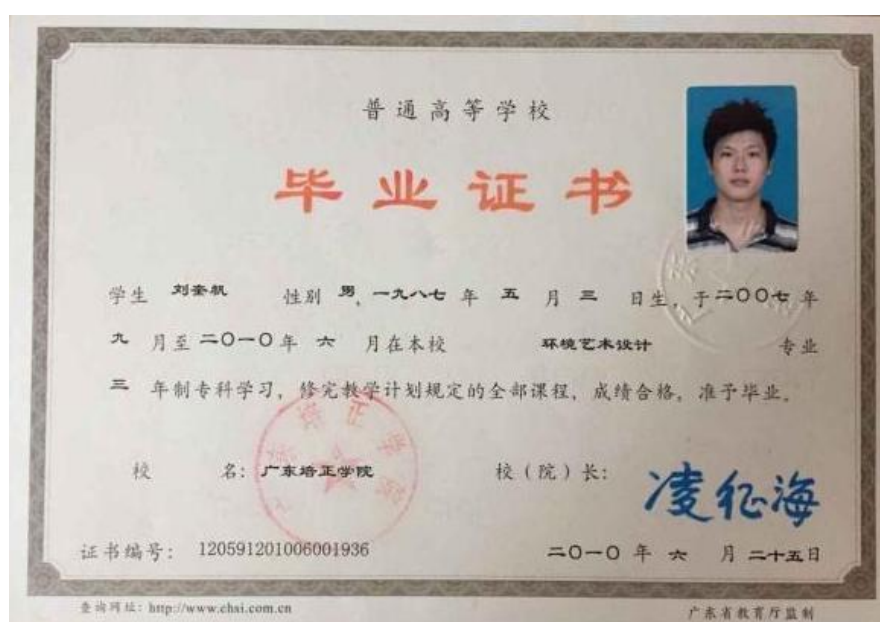 普通高等学校
毕业证书
学生 刘奎帆 性别 男，一九八七 年 五 月 三 日生，于二〇〇七年
九 月至二〇一〇年 六 月在本校 环境艺术设计 专业
三 年制专科学习，修完教学计划规定的全部课程，成绩合格，准予毕业。
校 名：广东培正学院 校（院）长： 凌征海
证书编号： 120591201006001936 二〇一〇 年 六 月 二十五日
查询网址：http://www.chsi.com.cn 广东省教育厅监制